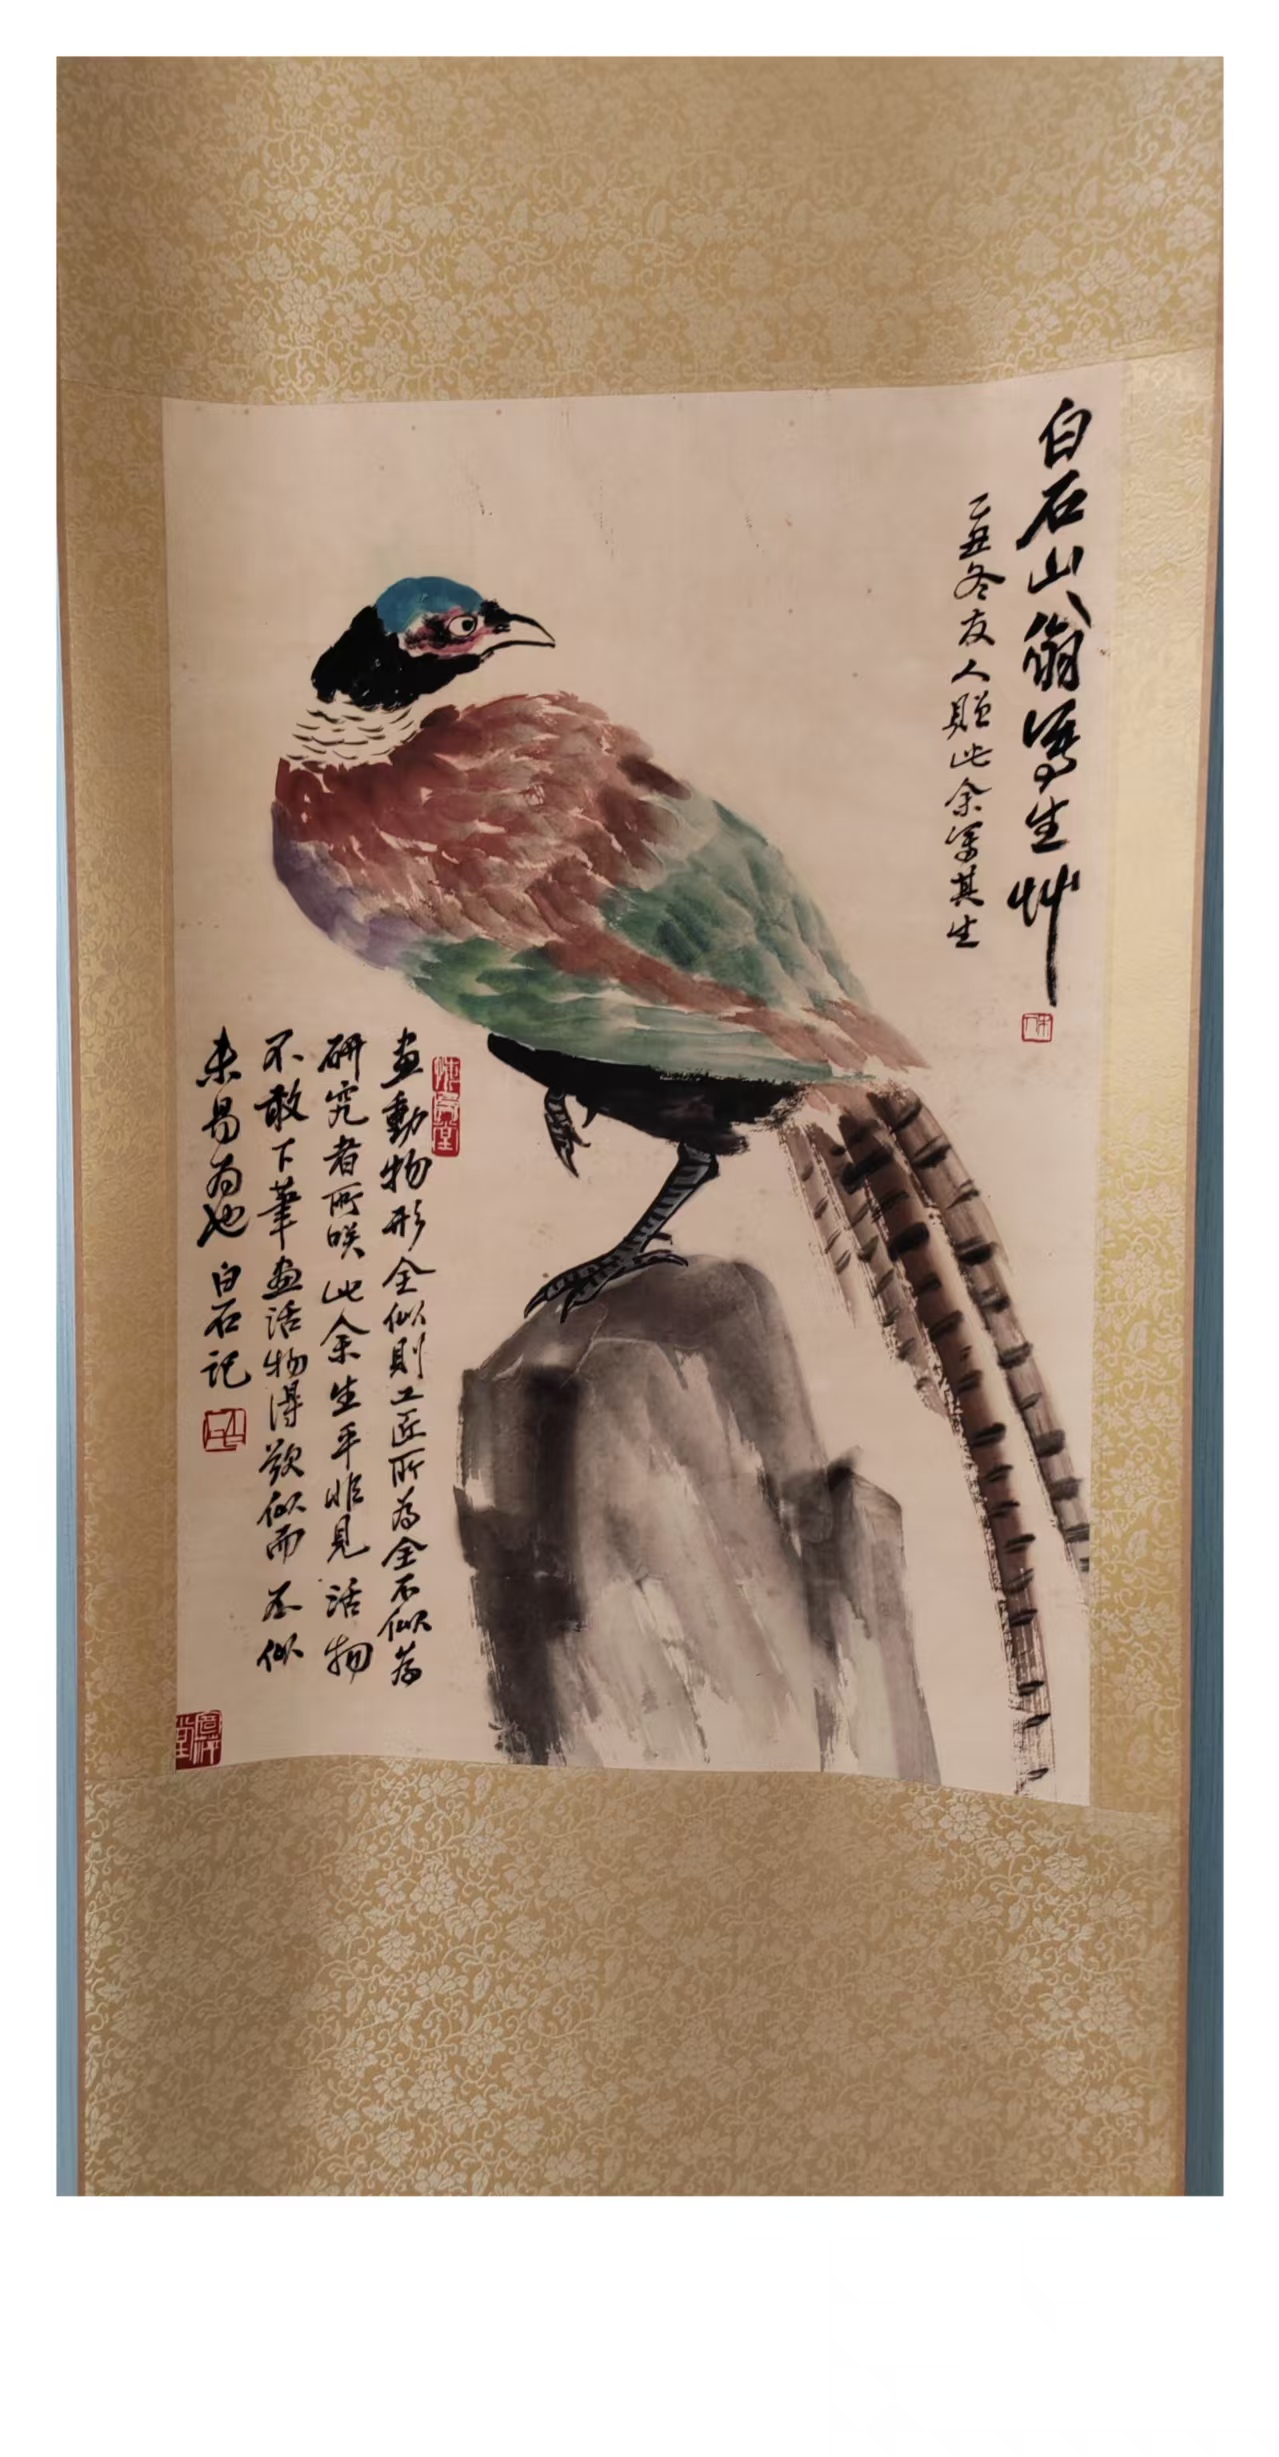 白石山翁写生草
乙丑冬友人赠此余写其生
畫動物形全似則工匠所為全不似為
研究者所笑此余生平非見活物
不敢下筆畫活物得欲似而不似
未易为也 白石記